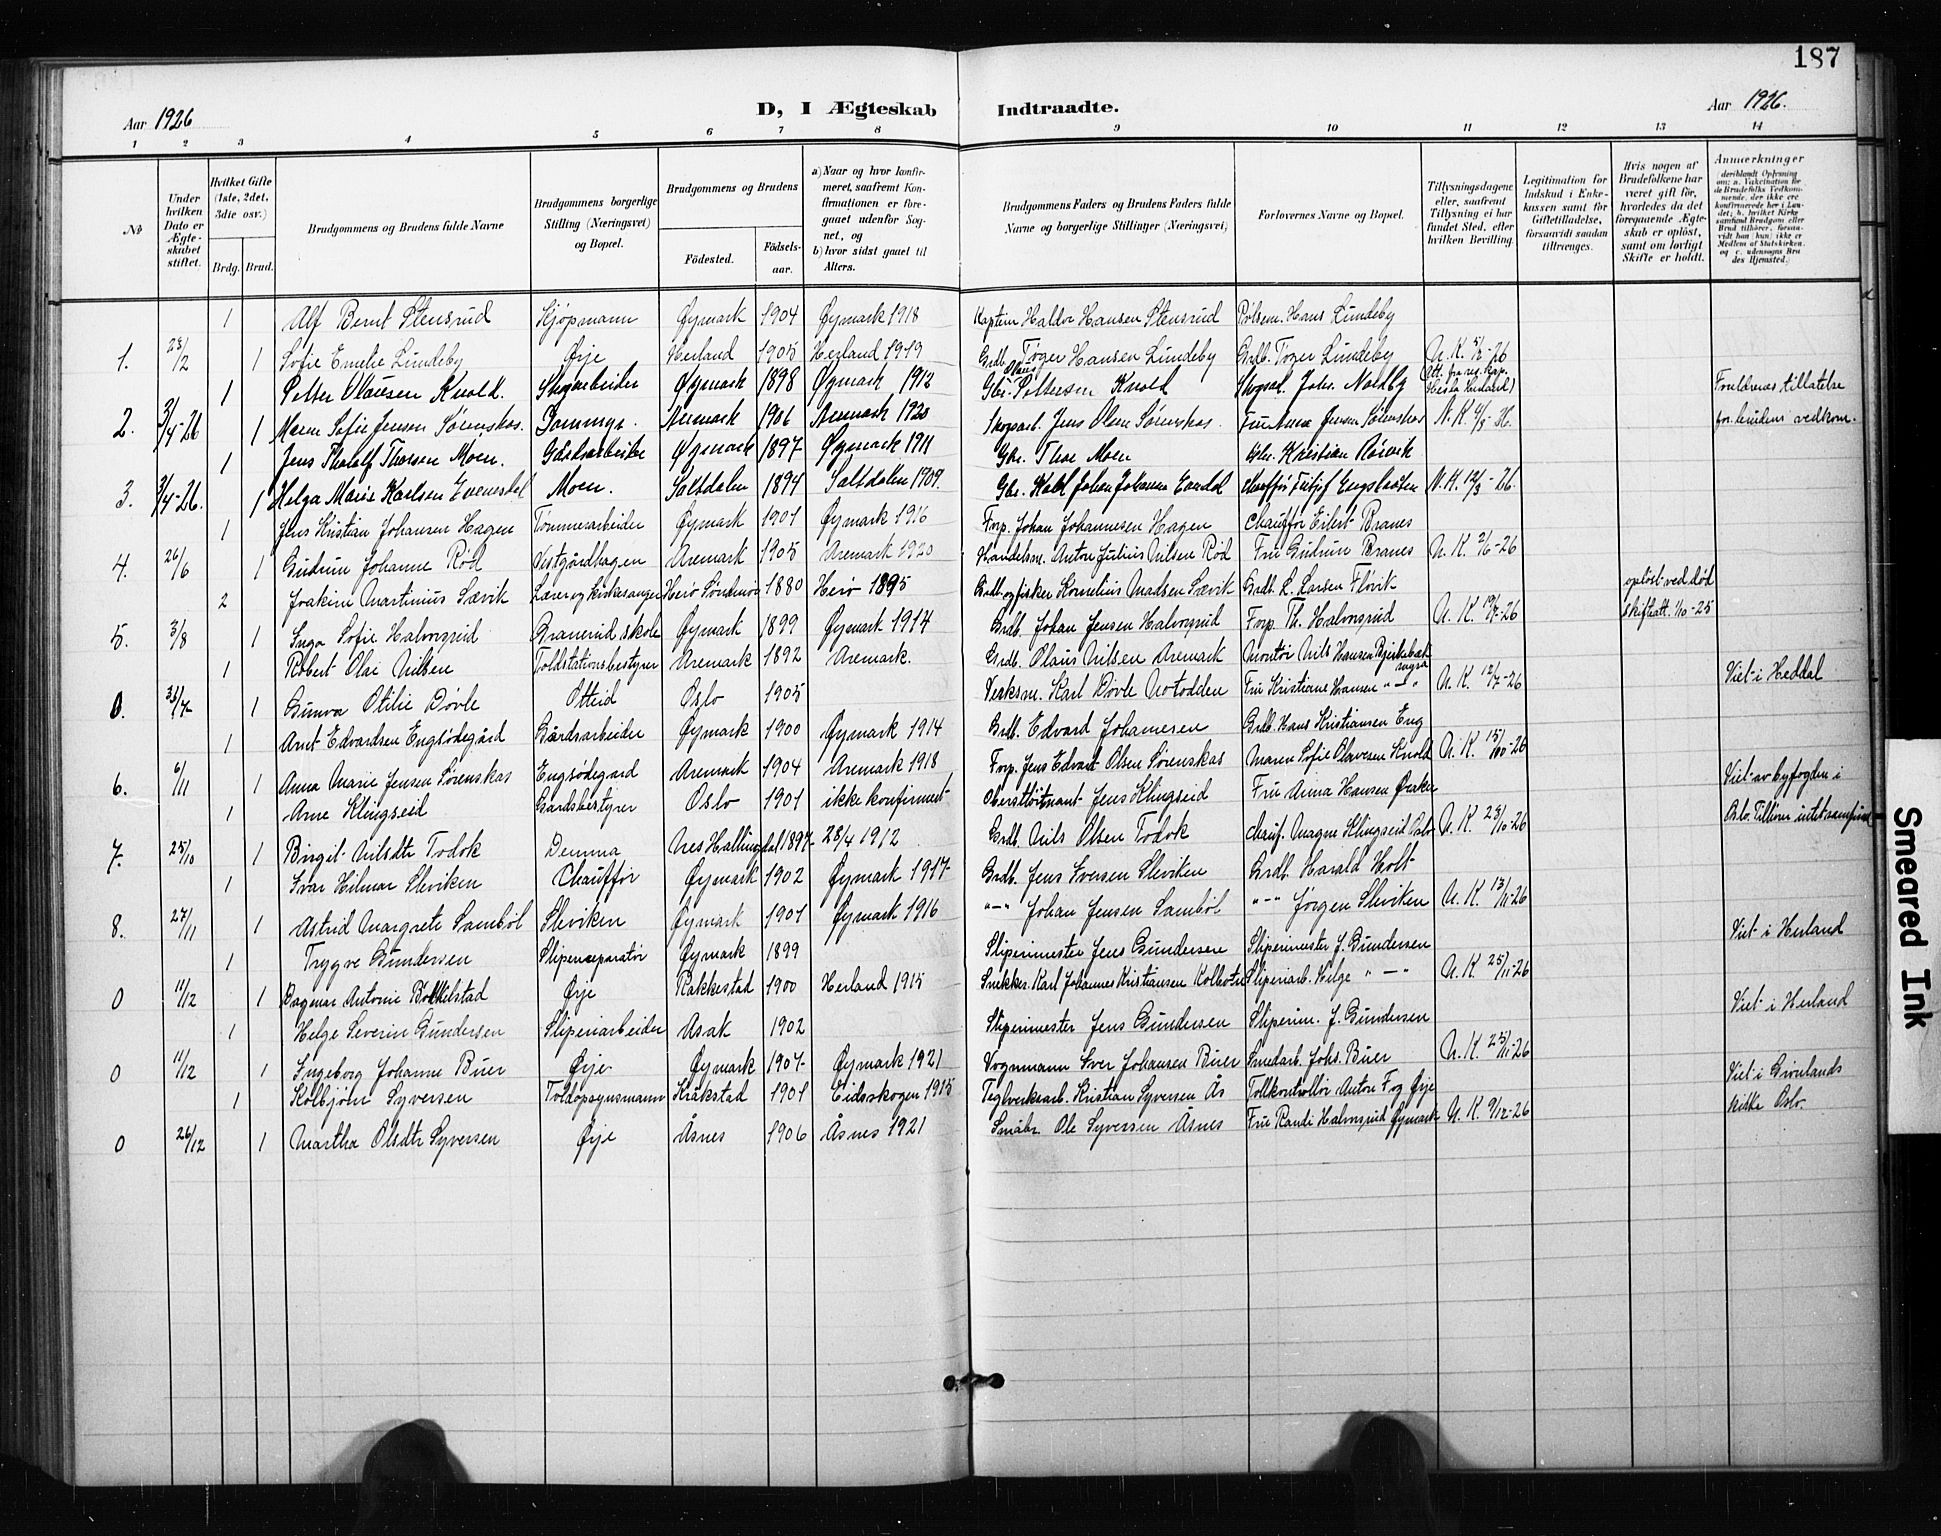 187
Aar 1926
D, I Ægteskab Indtraadte.
Aar 1926.
1 2 3 4 5 6 7 8 9 10 11 12 13 14
No
Under hvilken Dato er Ægteskabet stiftet.
Hvilket Gifte (1ste, 2det, 3die osv.)
Brdg. Brud.
Brudgommens og Brudens fulde Navne
Brudgommens borgerlige Stilling (Næringsvei) og Bopæl.
Brudgommens og Brudens
Födested.
Födselsaar.
a) Naar og hvor konfirmeret, saafremt Konfirmationen er foregaaet udenfor Sognet, og
b) hvor sidst gaaet til Alters.
Brudgommens Faders og Brudens Faders fulde Navne og borgerlige Stillinger (Næringsvei)
Forlovernes Navne og Bopæl.
Tillysningsdagene eller, saafremt Tillysning ei har fundet Sted, efter hvilken Bevilling.
Legitimation for Indskud i Enkekassen samt for Giftetilladelse, forsaavidt saadan tiltrænges.
Hvis nogen af Brudefolkene har været gift för, hvorledes da det foregaaende Ægteskab er oplöst, samt om lovligt Skifte er holdt.
Anmerkninger
1 Alf Bernt Stensrud Kjøpmann Øymark 1904 Øymark 1918 Kaptein Haldor Hansen Stensrud Pölsem. Hans Lundeby
1. 23/2 1 Sofie Emelie Lundeby Ørje Herland 1905 Herland 1919 Grdb. Töger Hansen Lundeby Grdb. Töger Lundeby N. K. 5/2-26
1 Petter Olausen Knold. Skogarbeider Øymark 1898 Øymark 1912 Gbr. Olaus Pettersen Knold Skogsarb. Johs. Nordby Foreldrenes tillatelse
2. 3/4-26 1 Maren Sofie Jensen Sørenskas. Aremark 1906 Aremark 1920 Skogsarb. Jens Olsen Sørenskas. Fru Anna Jensen Sørenskas N. K. 4/3-26. for brudens vedkom.
1 Jens Thoralf Thorsen Moen. Gårdsarbeider Øymark 1897 Øymark 1911 Gbr. Thor Moen Gbr. Kristian Rörvik
3. 3/4-26. 1 Helga Marie Karlsen Evensdal Moen. Saltdalen 1894 Saltdalen 1909. Gbr. Karl Johan Johansen N. K. 12/3-26.
1 Jens Kristian Johansen Hagen Tømmerarbeider Øymark 1901 Øymark 1916 Forp. Johan Johannesen Hagen Chauffør Eilert Branes
4. 26/6 1 Gudrun Johanne Rød Vestgårdhagen Aremark 1905 Aremark 1920 Handelsm. Anton Julius Nilsen Rød Fru Gudrun Branes N. K. 2/6-26
2 Joakim Martinius Sævik Lærer og kirkesanger Herö Söndmör 1880 Herö 1895 Grdb. og fisker Kornelius Madsen Sævik Grdb. L. Larsen Fløvik opløst ved död
5. 3/8 1 Inga Sofie Halvorsrud Branerud skole Øymark 1899 Øymark 1914 Grdb. Johan Jensen Halvorsrud Forp. Th. Halvorsrud N. K. 19/7-26 skifteatt. 1/10-25
1 Robert Olai Nilsen Toldstationsbestyrer Aremark 1892 Aremark. Grdb. Olaus Nilsen Aremark Montør Nils Hansen Bjerkebæk
0. 31/7 1 Gunva Otilie Døvle Otteid Oslo 1905 Verksm. Karl Døvle Notodden Fru Kristiane Hansen "—" N. K. 12/7-26 Viet i Heddal
1 Arnt Edvardsen Engsødegård Gårdsarbeider Øymark 1900 Øymark 1914 Grdb. Edvard Johannesen Grdb. Hans Kristiansen Eng
6. 6/11 1 Anna Marie Jensen Sørenskas Engsødegård Aremark 1904 Aremark 1918 Forp. Jens Edvart Olsen Sørenskas Maren Sofie Olavesen Knold N. K. 15/10-26
1 Arne Klingseid Gårdsbestyrer Oslo 1901 ikke konfirmert Oberstløitnant Jens Klingseid Fru Anna Hansen Viet av byfogden i
7. 25/10 1 Birgit Nilsdtr Todok Demma Nes Hallingdal 1897 28/4 1912 Grdb. Nils Olsen Todok Chauf. Magne Klingseid Oslo N. K. 23/10-26 Oslo. Tilhører intet samfund
1 Ivar Hilmar Sleviken Chauffør Øymark 1902 Øymark 1917 Grdb. Jens Iversen Sleviken Grdb. Harald Holt
8. 27/11 1 Astrid Margrete Sambøl Sleviken Øymark 1901 Øymark 1916 "—" Johan Jensen Sambøl "—" Jørgen Sleviken N. K. 13/11-26
1 Trygve Gundersen Slipereparatør Øymark 1899 Sliperimester Jens Gundersen Sliperimester J. Gundersen Viet i Herland
0 11/12 1 Dagmar Antonie Bøkkelstad Ørje Rakkestad 1900 Herland 1915 Snekker Karl Johannes Kristiansen Kolbotn Sliperiarb. Helge "—" N. K. 25/11-26
1 Helge Severin Gundersen Sliperiarbeider Asak 1902 Sliperimester Jens Gundersen Sliperim. J. Gundersen Viet i Herland
0 11/12 1 Ingeborg Johanne Buer Ørje Øymark 1907 Øymark 1921 Vognmann Iver Johansen Buer Smedarb. Johs. Buer N. K. 25/11-26
1 Kolbjörn Syversen Toldopsynsmann Kråkstad 1901 Eidsskogen 1915 Teglverksarb. Kristian Syversen Ås Tollkontrollør Anton Fog Ørje Viet i Grønlands
0 26/12 1 Martha Olsdtr Syversen Ørje Åsnes 1906 Åsnes 1921 Småbr. Ole Syversen Åsnes Fru Randi Halvorsrud Øymark N. K. 9/12-26 kirke Oslo.
Smeared Ink